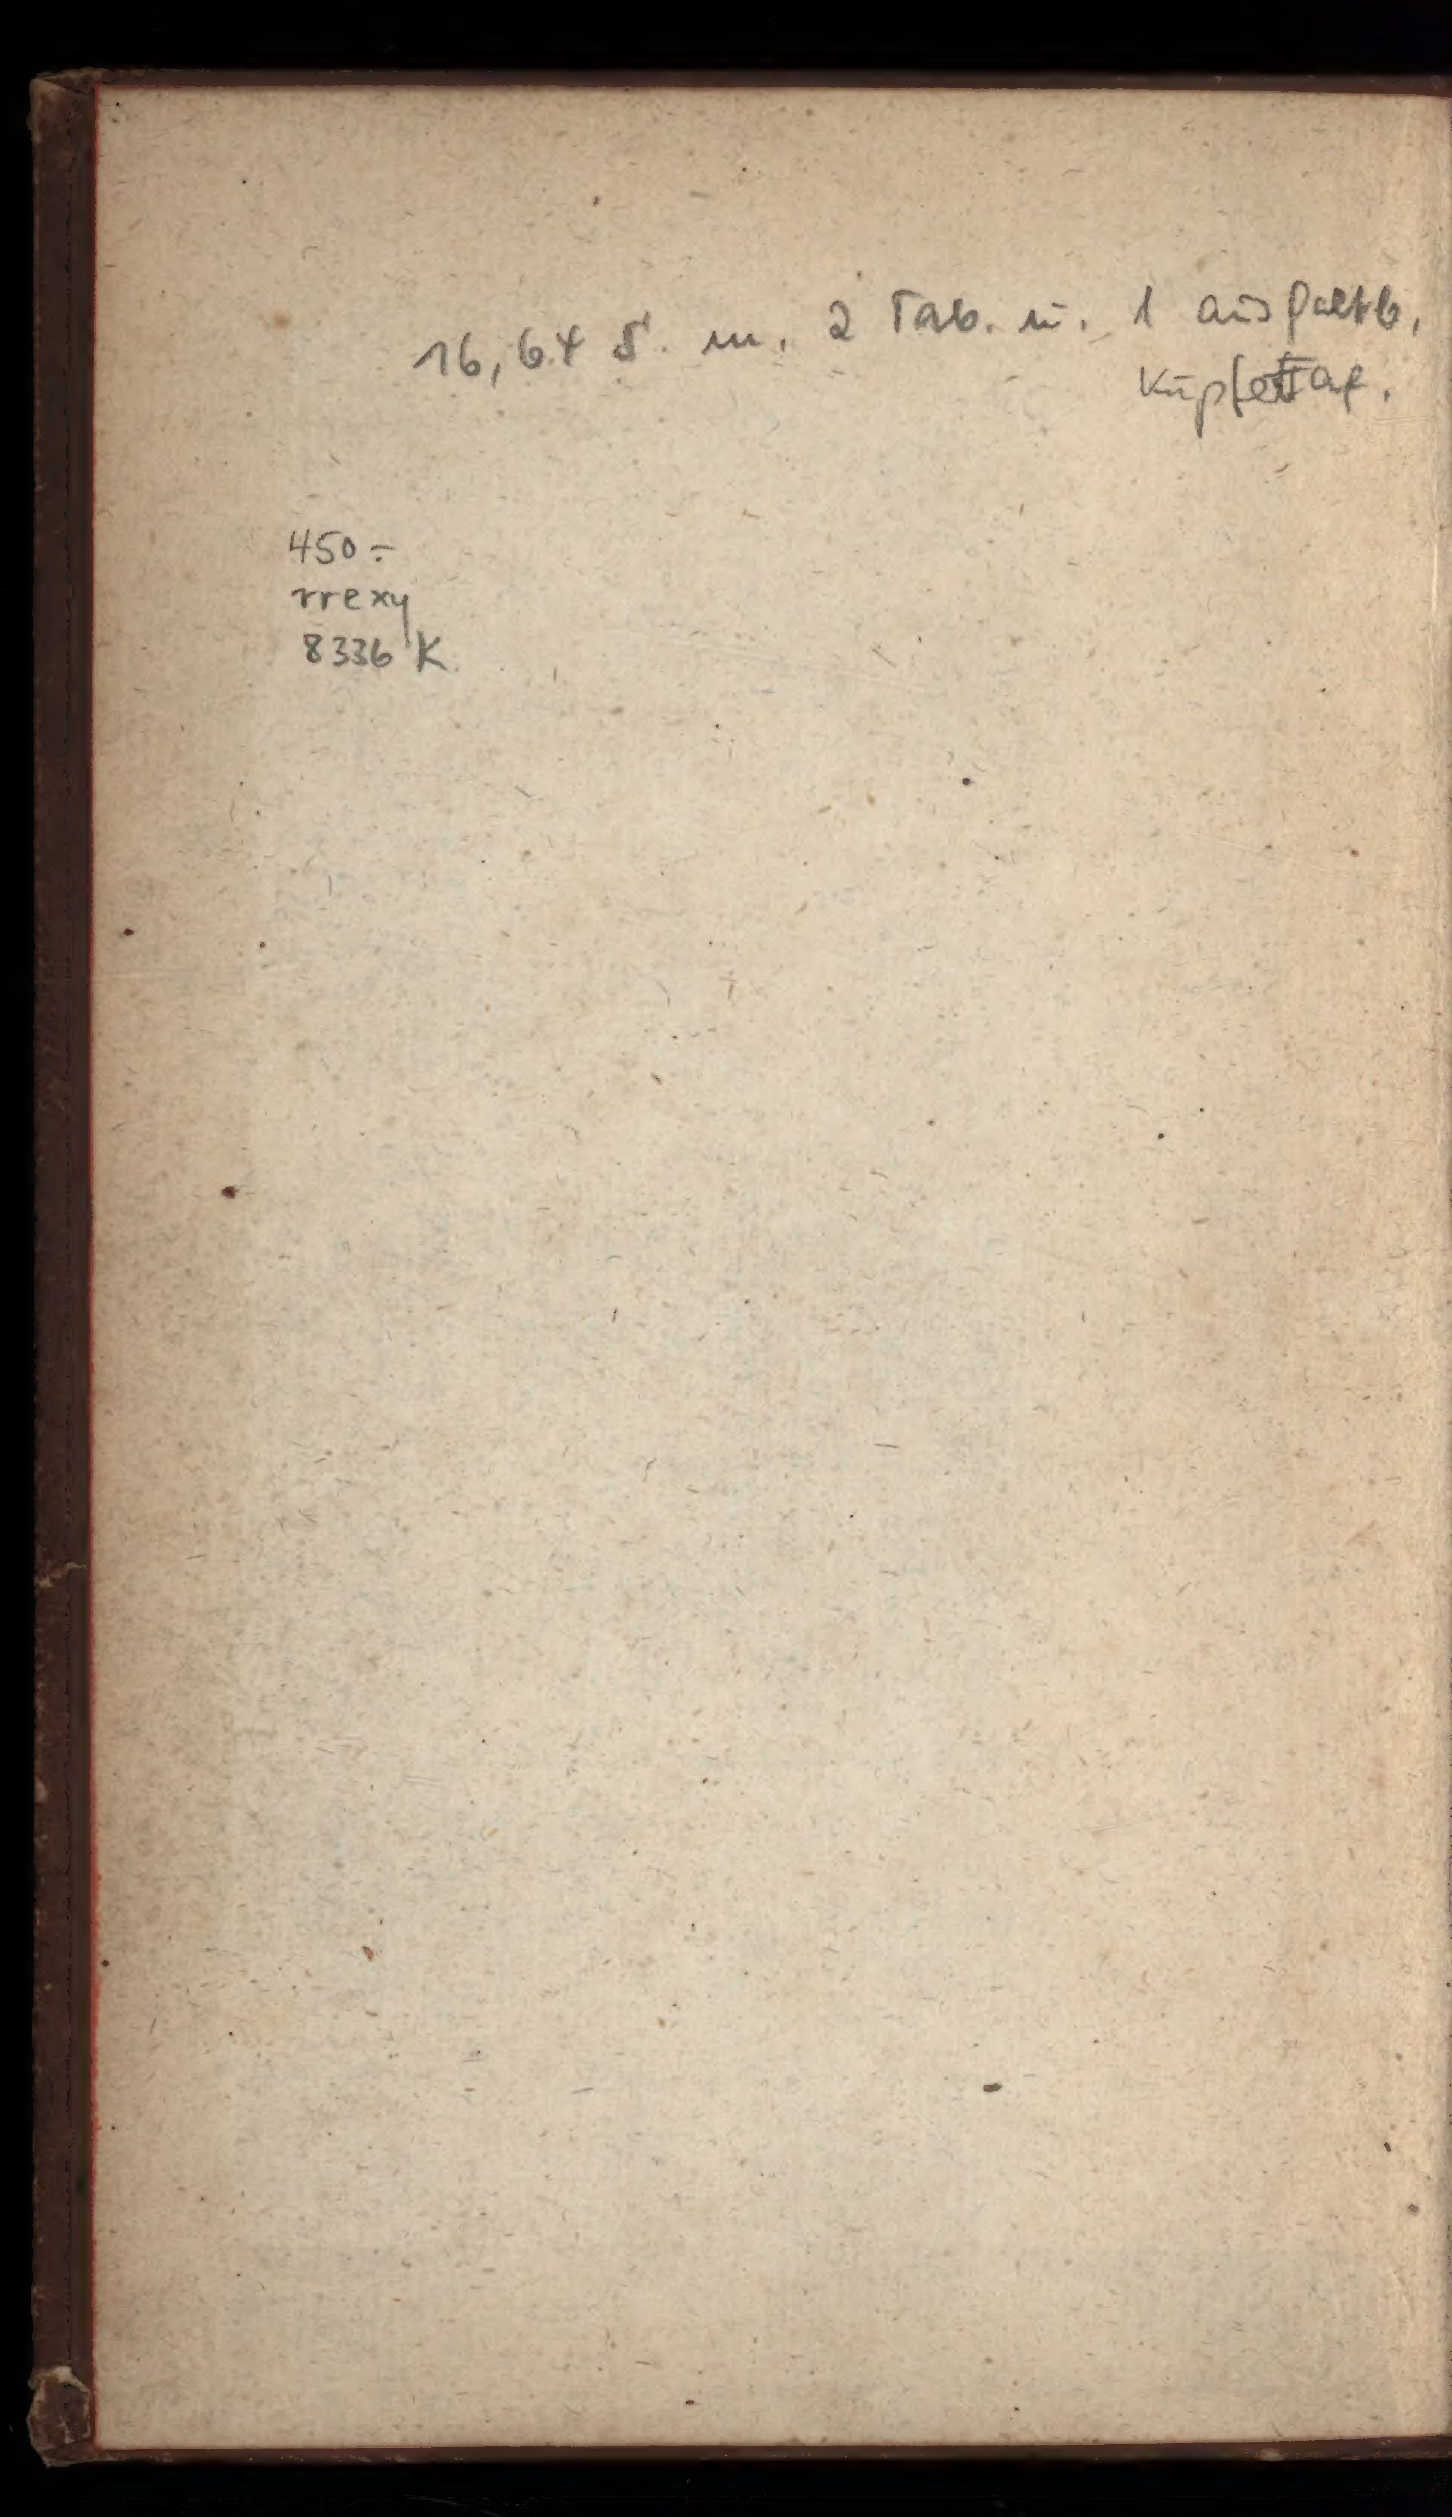 16, 64 S. m. 2 Tab. u. 1 ausfaltb.
Kupfertaf.
450.-
rrexy
8336 K